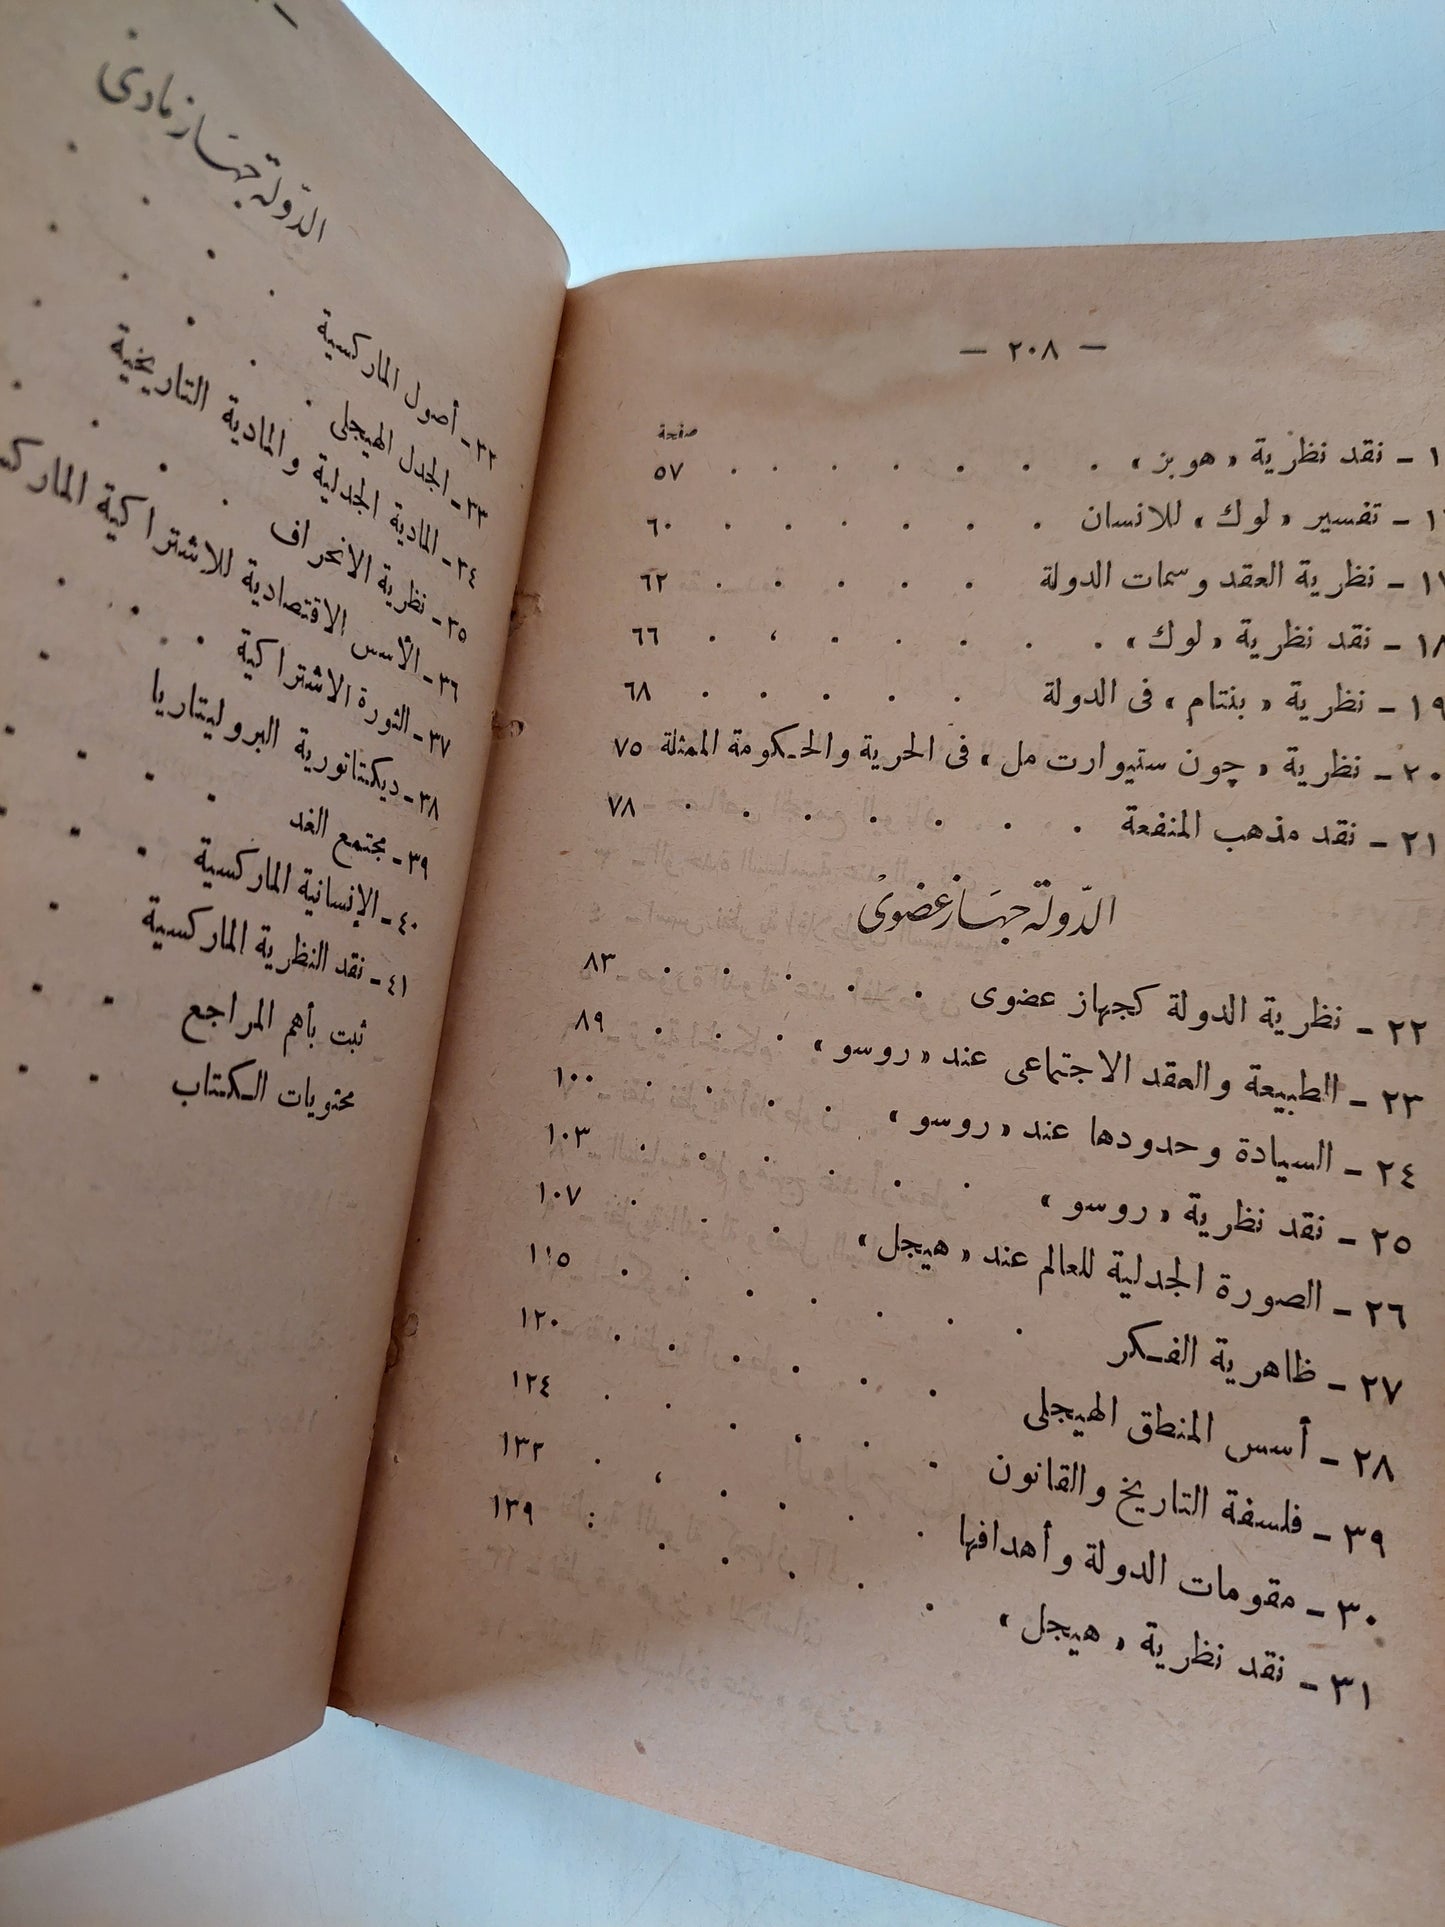 — ٢٠٨ —
صفحة
نقد نظرية « هوبز » ٥٧
تفسير « لوك » للانسان ٦٠
نظرية العقد وسمات الدولة ٦٢
١٨ — نقد نظرية « لوك » ٦٦
١٩ — نظرية « بنتام » فى الدولة ٦٨
٢٠ — نظرية « چون ستيوارت مل » فى الحرية والحكومة الممثلة ٧٥
٢١ — نقد مذهب المنفعة ٧٨
الدّولة جهَاز عضوىّ
٢٢ — نظرية الدولة كجهاز عضوى ٨٣
٢٣ — الطبيعة والعقد الاجتماعى عند « روسو » ٨٩
٢٤ — السيادة وحدودها عند « روسو » ١٠٠
٢٥ — نقد نظرية « روسو » ١٠٣
٢٦ — الصورة الجدلية للعالم عند « هيجل » ١٠٧
٢٧ — ظاهرية الفكر ١١٥
٢٨ — أسس المنطق الهيجلى ١٢٠
٣٩ — فلسفة التاريخ والقانون ١٢٤
٣٠ — مقومات الدولة وأهدافها ١٣٢
٣١ — نقد نظرية « هيجل » ١٣٩
الدّولة جهَاز مادىّ
٣٢ — أصول الماركسية
٣٣ — الجدل الهيجلى
٣٤ — المادية الجدلية والمادية التاريخية
٣٥ — نظرية الانحراف
٣٦ — الأسس الاقتصادية للاشتراكية
٣٧ — الثورة الاشتراكية
٣٨ — ديكتاتورية البروليتاريا
٣٩ — مجتمع الغد
٤٠ — الإنسانية الماركسية
٤١ — نقد النظرية الماركسية
ثبت بأهم المراجع
محتويات الكتاب